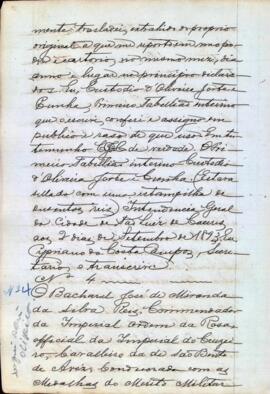 mente trasladei, extrahido do proprio
original a que me reporto em meo po
der e cartorio, no mesmo mez, dia
anno e lugar no principio declara
dos. Eu, Custodio d'Oliveira Forte e
Cunha, Primeiro Tabellião interino
que o escrevi, conferi e assigno em
publico e raso de que uso. Em tes
temunho de verdade. O Pri
meiro Tabellião interino Custodio
d'Oliveira Forte e Cunha (Estava
sellado com uma estampilha de
duzentos reis). Intendencia Geral
da Cidade de São Luiz de Caceres,
aos 2 dias de Setembro de 1893. Eu
Cypriano da Costa Campos, Secre
tario, o transcrevi.
4
O Bacharel José de Miranda
da Silva Reis, Commendador
da Imperial Ordem da Rosa
official da Imperial do Cruzei
ro, Cavalleiro da de São Bento
de Aviz, Condecorado com as
Medalhas do Merito Militar